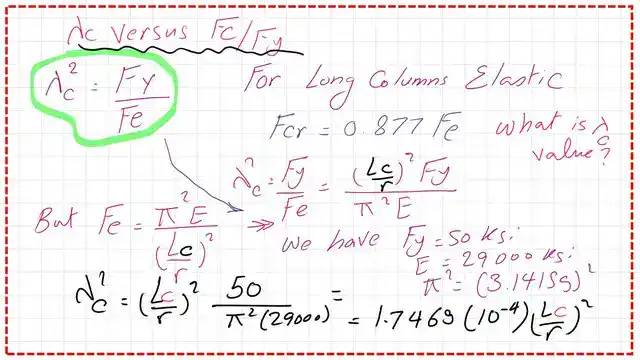 λc versus Fc/Fy
λc² = Fy/Fe
For Long Columns Elastic
Fcr = 0.877 Fe
What is λc value?
λc² = Fy/Fe = (Lc/r)² Fy / π² E
But Fe = π² E / (Lc/r)² >>
We have Fy = 50 ksi
E = 29000 ksi
π² = (3.14159)²
λc² = (Lc/r)² 50 / π² (29000) =
= 1.7469 (10⁻⁴) (Lc/r)²